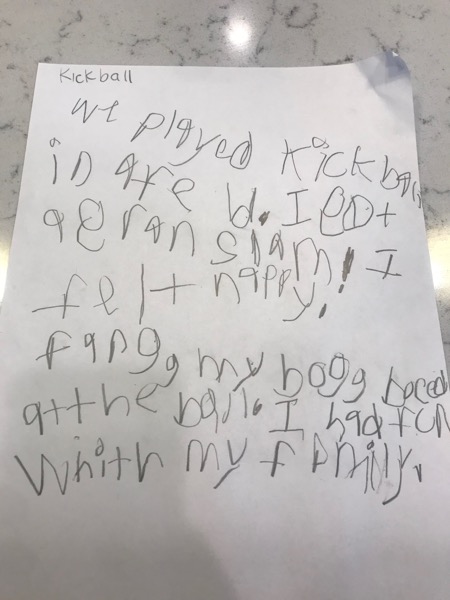 Kickball
we played kickball
in are I got
a gran slam! I
felt happy!
my bogg boced
at the ball. I had fun
Whith my family.